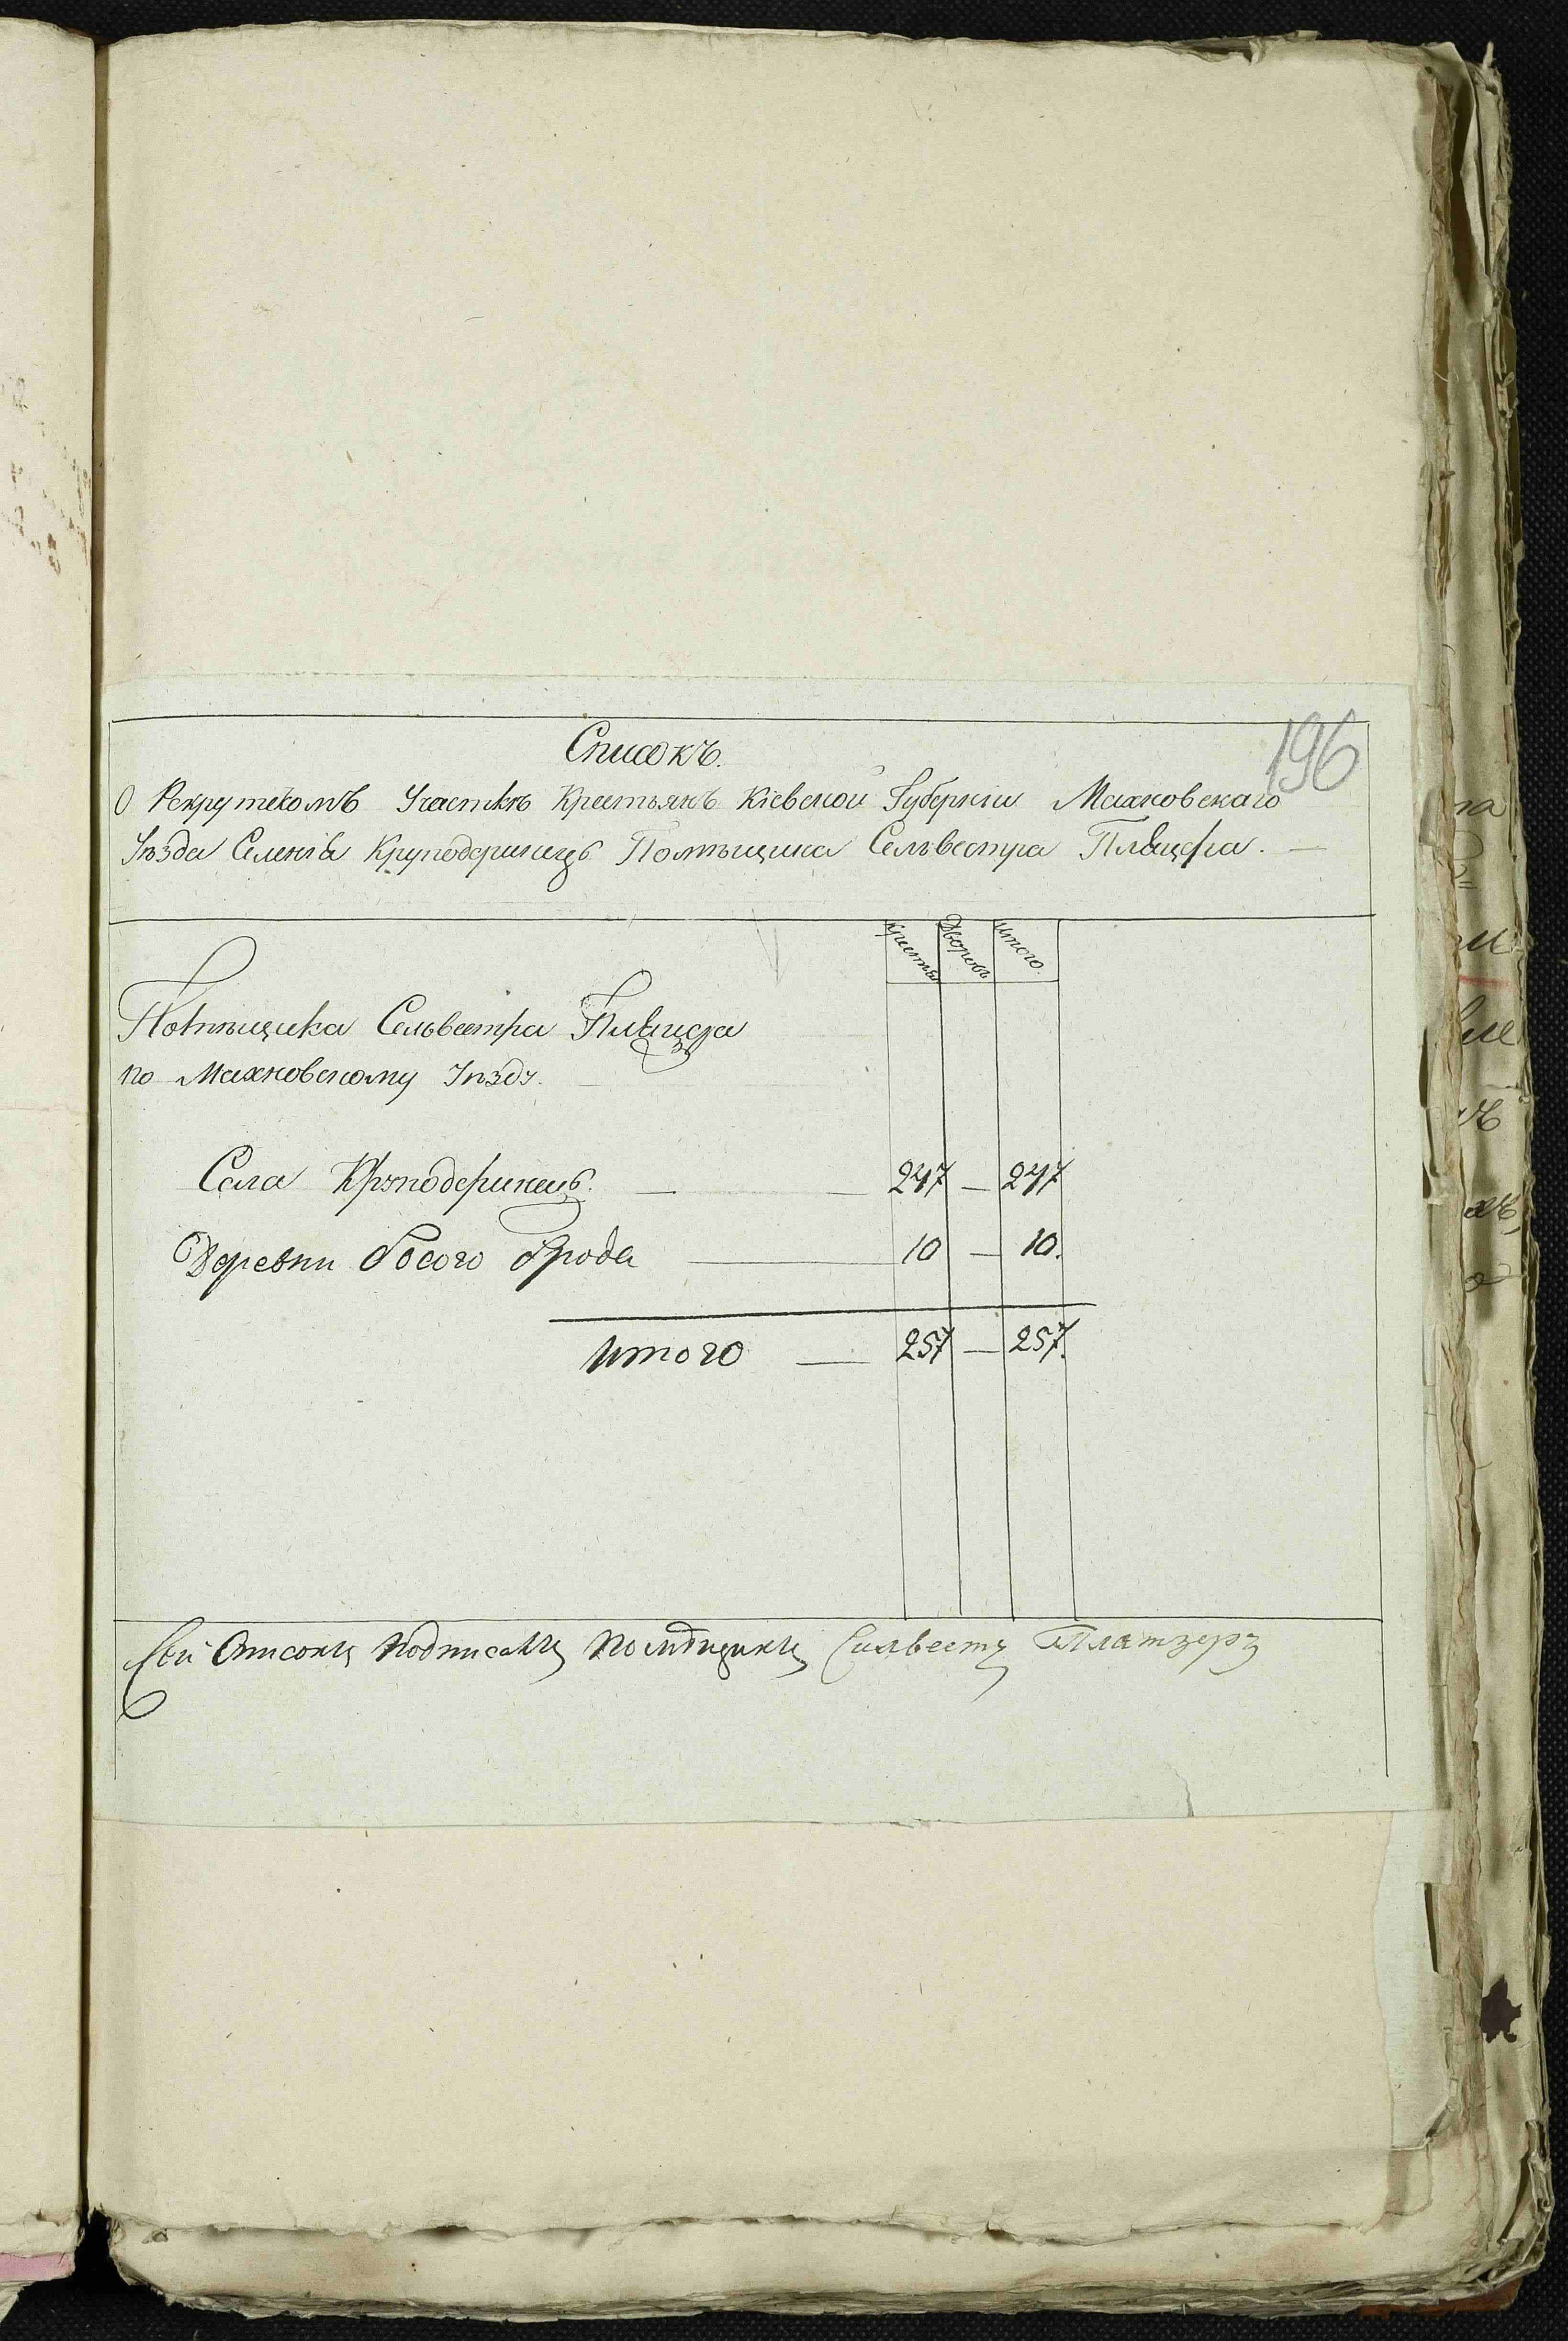 196
Списокъ.
О Рекрутскомъ Участке Крестьянъ Кіевской Губерніи Махновскаго
Уезда Селенія Круподеринецъ Помещика Сельвестра
Крестья Дворовъ итого.
Помещика Сельвестра
по Махновскому Уезду.
Села Круподеринецъ. — 247 — 247
Деревни Босого Брода — 10 — 10.
Итого — 257 — 257.
Сей Списокъ Подписалъ Помещикъ Сильвестъ Платзеръ